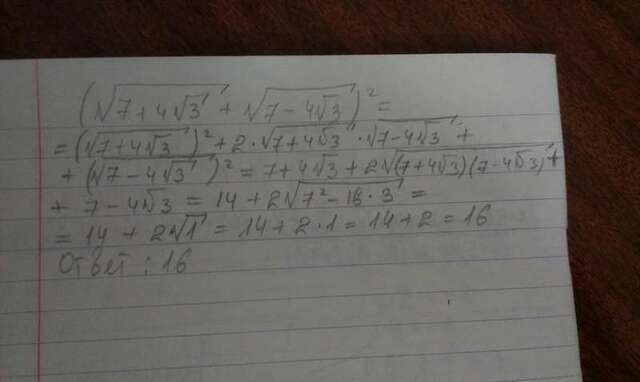 (√(7+4√3) + √(7-4√3))² =
= (√(7+4√3))² + 2·√(7+4√3)·√(7-4√3) +
+ (√(7-4√3))² = 7+4√3 + 2√((7+4√3)(7-4√3)) +
+ 7-4√3 = 14+2√(7²-16·3) =
= 14 + 2√1 = 14+2·1 = 14+2 = 16
Ответ : 16